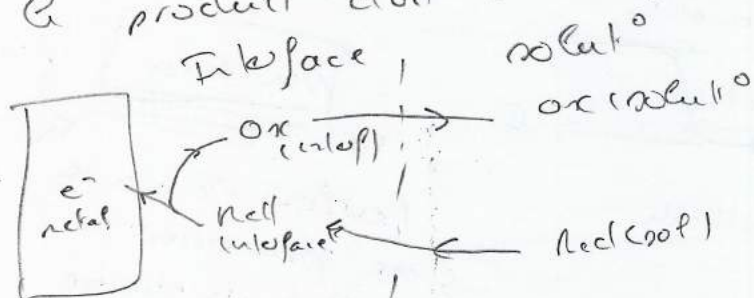 produit
Interface solut°
ox (interf) ox (solut°
e⁻
metal
Red
(interface) Red (sol)